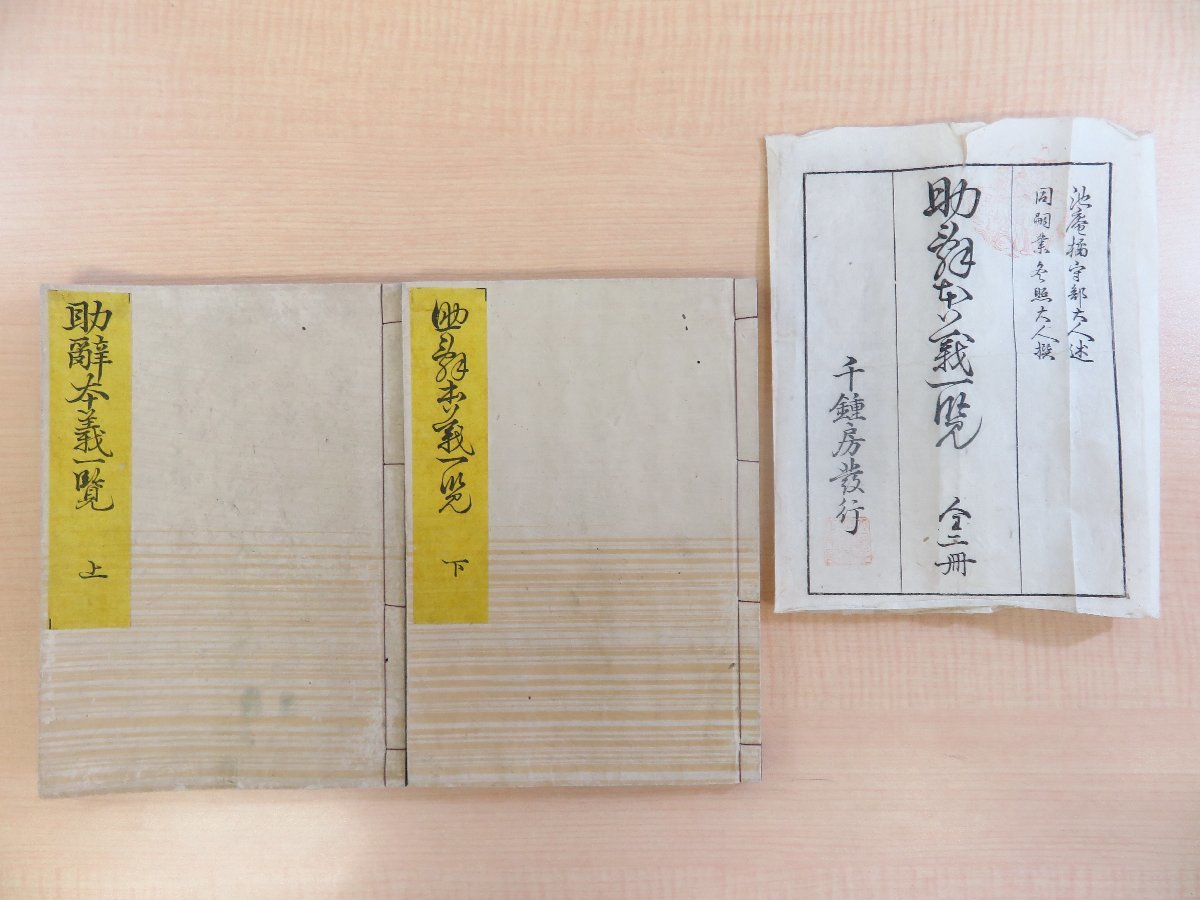 助辭本義一覧
上
助辞本義一覧
下
池庵橘守部大人述
同嗣業冬照大人撰
助辞本義一覧 全二冊
千鍾房發行